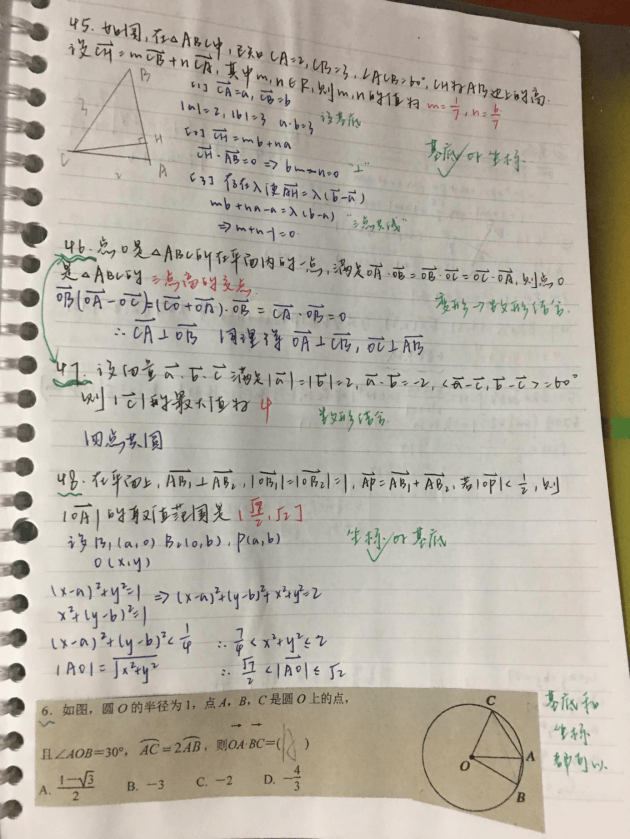 45. 如图,在△ABC中,已知CA=2,CB=3,∠ACB=60°,CH为AB边上的高.
设CH=mCB+nCA,其中m,n∈R,则m,n的值为 m=1/7,n=6/7
(1) CA=a, CB=b
|a|=2, |b|=3 a·b=3 设基底
(2) CH=mb+na
CH·AB=0 ⇒ 6m-n=0 "⊥"
基底 or 坐标
(3) 存在λ使AH=λ(b-a)
mb+na-a=λ(b-a) "三点共线"
⇒m+n-1=0
B
3
H
C
A
2
46. 点O是△ABC所在平面内的一点,满足OA·OB=OB·OC=OC·OA,则点O
是△ABC的三点高的交点
OB(OA-OC)=(CO+OA)·OB=CA·OB=0
变形→数形结合.
∴CA⊥OB 同理得 OA⊥CB, OC⊥AB
47. 设向量a·b·c满足|a|=|b|=2, a·b=-2, <a-c,b-c>=60°
则|c|的最大值为 4
数形结合
四点共圆
48. 在平面上, AB₁⊥AB₂, |OB₁|=|OB₂|=1, AP=AB₁+AB₂, 若|OP|<1/2, 则
|OA|的取值范围是 (√7/2, √2]
设B₁(a,0) B₂(0,b), P(a,b)
坐标 or 基底
O(x,y)
(x-a)²+y²=1 ⇒ (x-a)²+(y-b)²+x²+y²=2
x²+(y-b)²=1
(x-a)²+(y-b)²<1/4 ∴ 7/4<x²+y²≤2
|AO|=√x²+y² ∴ √7/2<|AO|≤√2
6. 如图,圆O的半径为1,点A,B,C是圆O上的点,
且∠AOB=30°, AC=2AB,则OA·BC=( )
A. 1-√3/2 B. -3 C. -2 D. -4/3
C
O
A
B
基底和
坐标
都可以